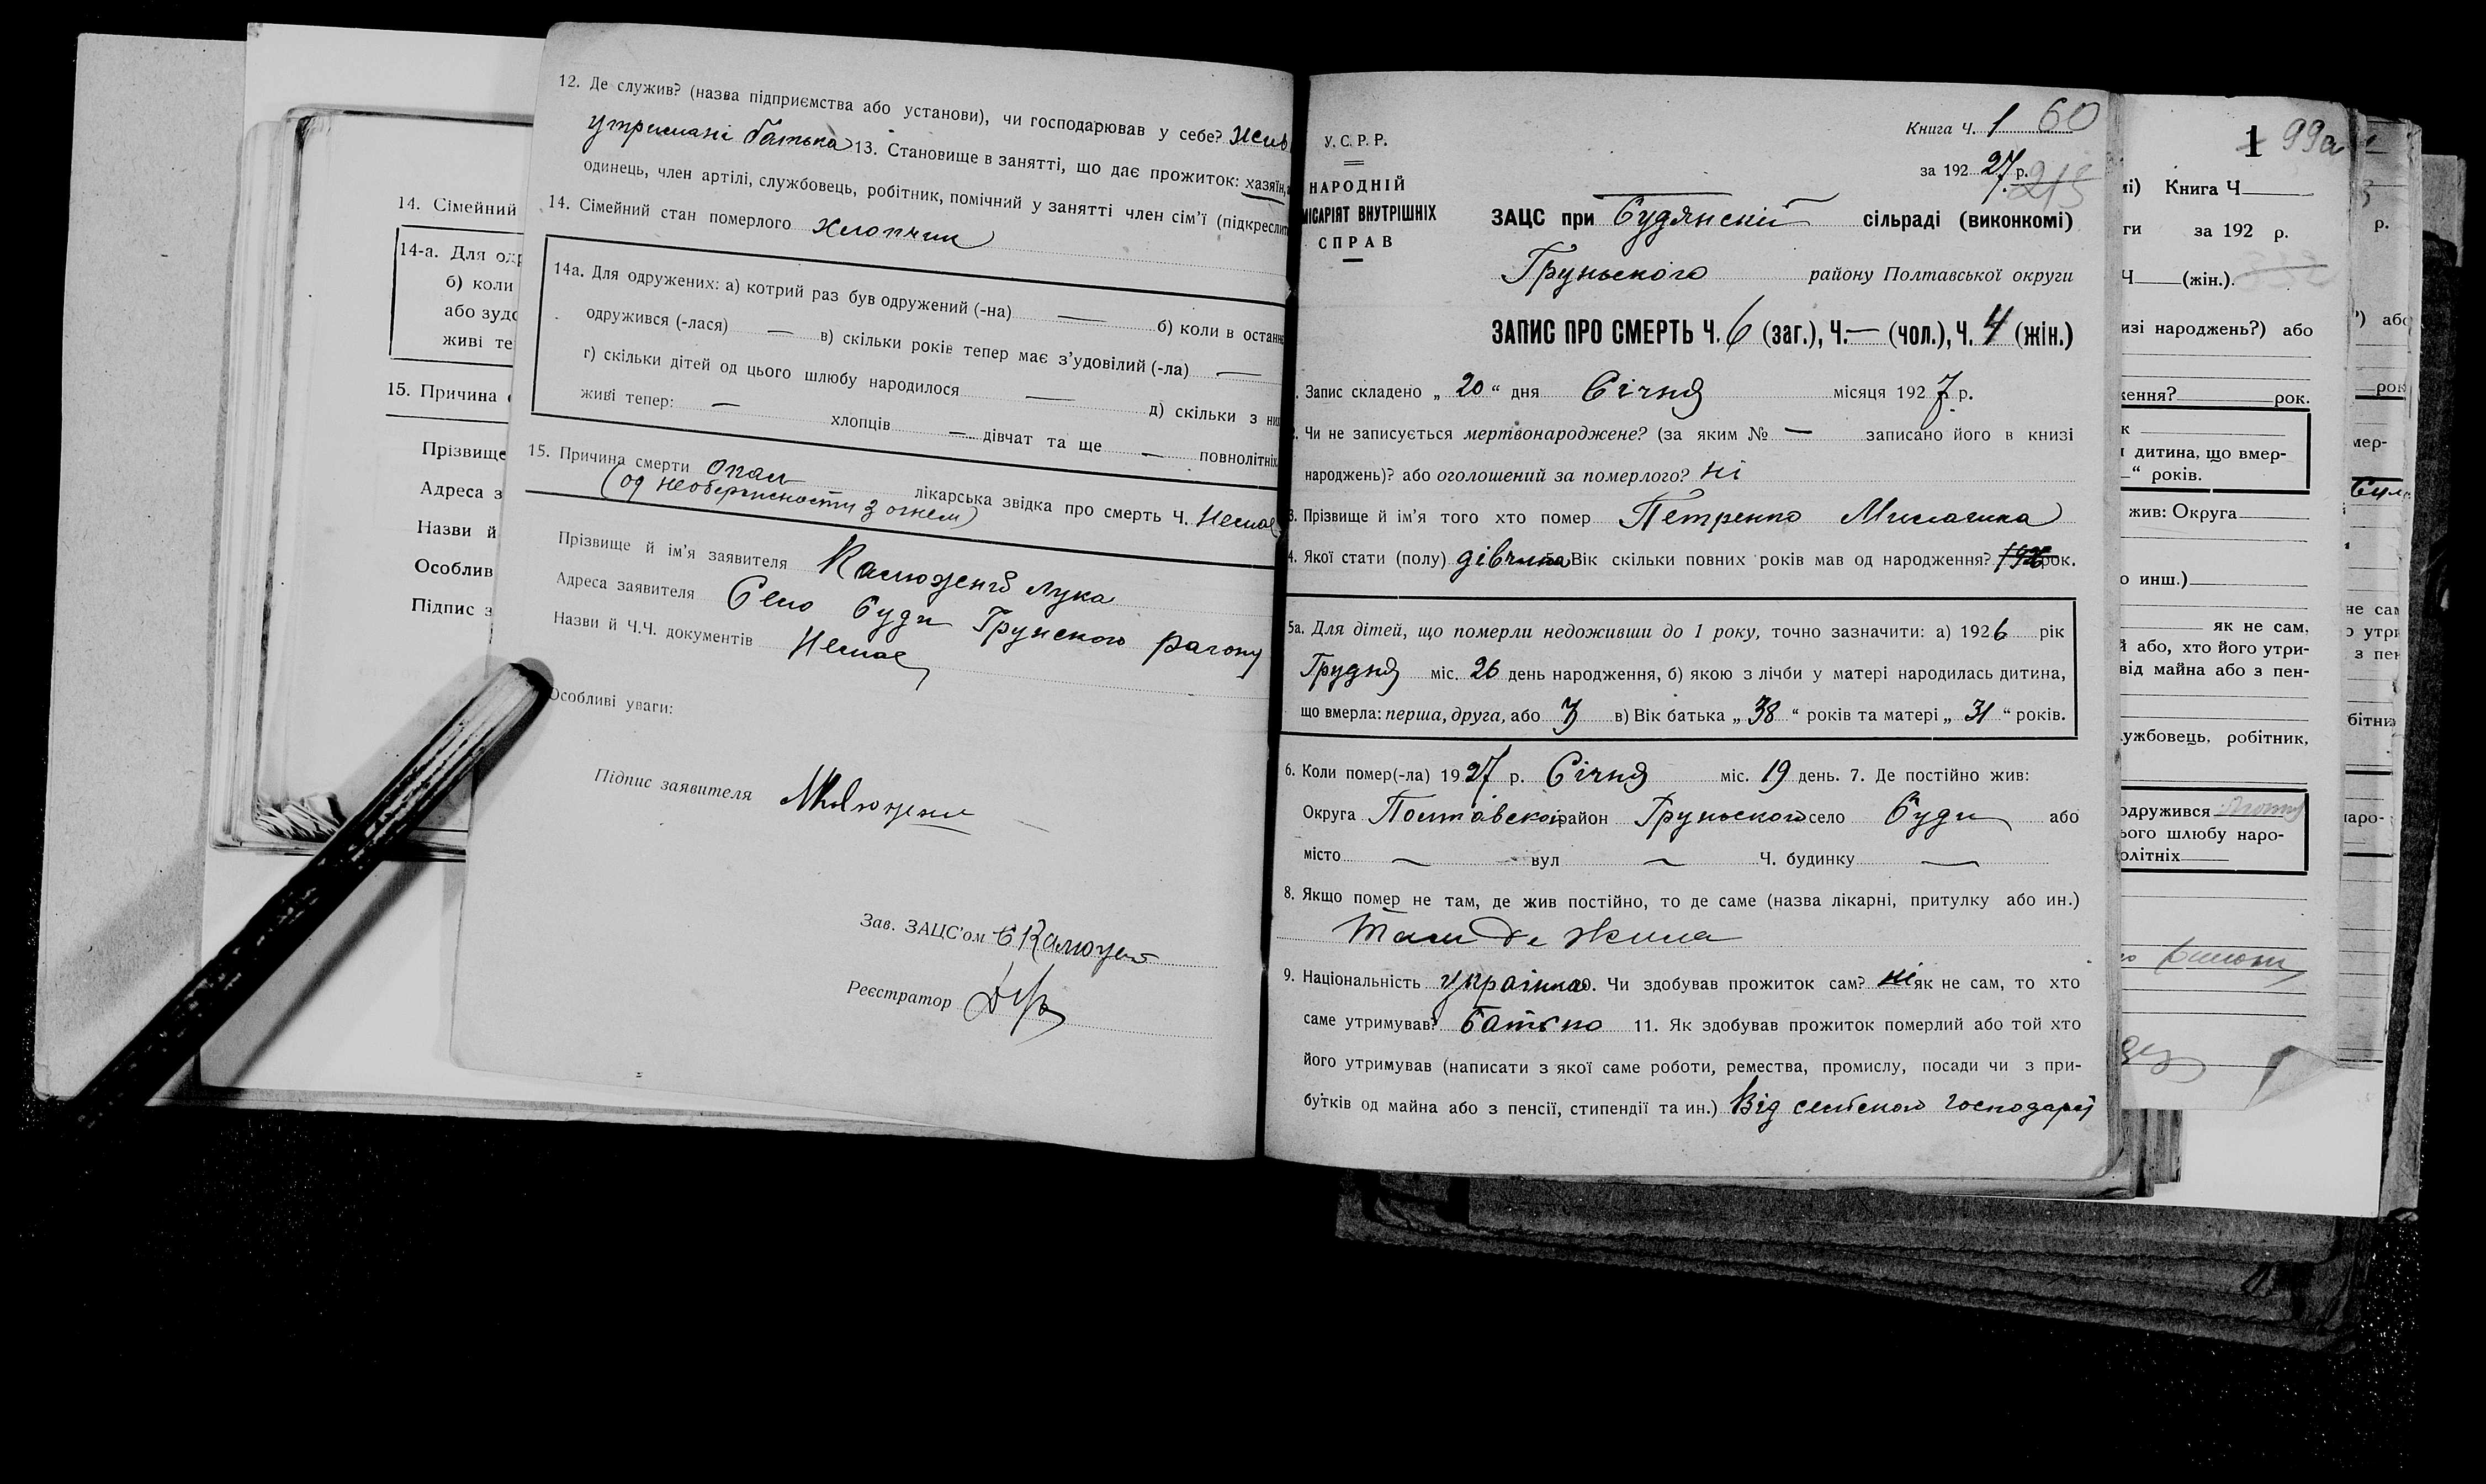 14. Сімейний
14-а. Для одр
б) коли
або зудо
живі те
15. Причина
Прізвище
Адреса з
Назви й
Особлив
Підпис з
12. Де служив? (назва підприємства або установи), чи господарював у себе? Жив
утримані батька 13. Становище в занятті, що дає прожиток: хазяїн,
одинець, член артілі, службовець, робітник, помічний у занятті член сім'ї (підкреслит
14. Сімейний стан померлого Хлопчик
14а. Для одружених: а) котрий раз був одружений (-на) — б) коли в останн
одружився (-лася) — в) скільки років тепер має з'удовілий (-ла) —
г) скільки дітей од цього шлюбу народилося — д) скільки з ни
живі тепер: — хлопців — дівчат та ще — повнолітніх
15. Причина смерти опал
(од необережности з огнем) лікарська звідка про смерть Ч. Немає
Прізвище й ім'я заявителя Калюжний Лука
Адреса заявителя Село Буди Грунского району
Назви й Ч.Ч. документів Немає
Особливі уваги:
Підпис заявителя
Зав. ЗАЦС'ом
Реєстратор
Книга Ч. 1 60
У.С.Р.Р.
за 192 27 р. 215
НАРОДНІЙ
МІСАРІЯТ ВНУТРІШНІХ
СПРАВ
ЗАЦС при Будянскій сільраді (виконкомі)
Груньского району Полтавської округи
ЗАПИС ПРО СМЕРТЬ Ч. 6 (заг.), Ч. — (чол.), Ч. 4 (жін.)
Запис складено „ 20 “ дня Січня місяця 192 7 р.
Чи не записується мертвонароджене? (за яким № — записано його в книзі
народжень)? або оголошений за померлого? ні
3. Прізвище й ім'я того хто помер Петренко
4. Якої стати (полу) дівчина 5. Вік скільки повних років мав од народження? 1926 рок.
5а. Для дітей, що померли недоживши до 1 року, точно зазначити: а) 1926 рік
Грудня міс. 26 день народження, б) якою з лічби у матері народилась дитина,
що вмерла: перша, друга, або 7 в) Вік батька „ 38 “ років та матері „ 31 “ років.
6. Коли помер(-ла) 19 27 р. Січня міс. 19 день. 7. Де постійно жив:
Округа Полтавской район Груньского село Буди або
місто — вул — Ч. будинку —
8. Якщо помер не там, де жив постійно, то де саме (назва лікарні, притулку або ин.)
Там де жила
9. Національність українка 10. Чи здобував прожиток сам? ні як не сам, то хто
саме утримував? батько 11. Як здобував прожиток померлий або той хто
його утримував (написати з якої саме роботи, ремества, промислу, посади чи з при-
бутків од майна або з пенсії, стипендії та ин.) Від сельского господарст
1 99а
мі) Книга Ч
ги за 192 р.
Ч (жін.).
изі народжень?) або
ження? рок.
к
дитина, що вмер-
“ років.
жив: Округа
о инш.)
як не сам,
й або, хто його утри-
від майна або з пен-
ужбовець, робітник,
одружився
ього шлюбу наро-
олітніх
р.
') або
рок
мер-
не сам
о утри
з пен
бітник
наро-